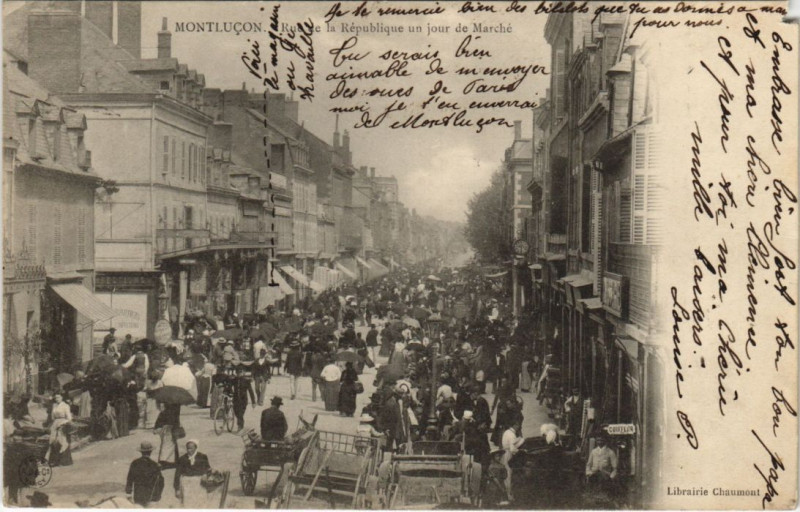 MONTLUÇON. Rue de la République un jour de Marché
Je te remercie bien des bibelots que tu as donnés a ma
pour nous.
Voici
le magasin
ou je
travaille
Tu serais bien
aimable de m'envoyer
des vues de Paris
moi je t'en enverrai
de Montluçon
Embrasse bien fort ton bon papa
et ma chère Clémence
et pour toi ma chérie
mille baisers.
Louise P.
COIFFEUR
Librairie Chaumont